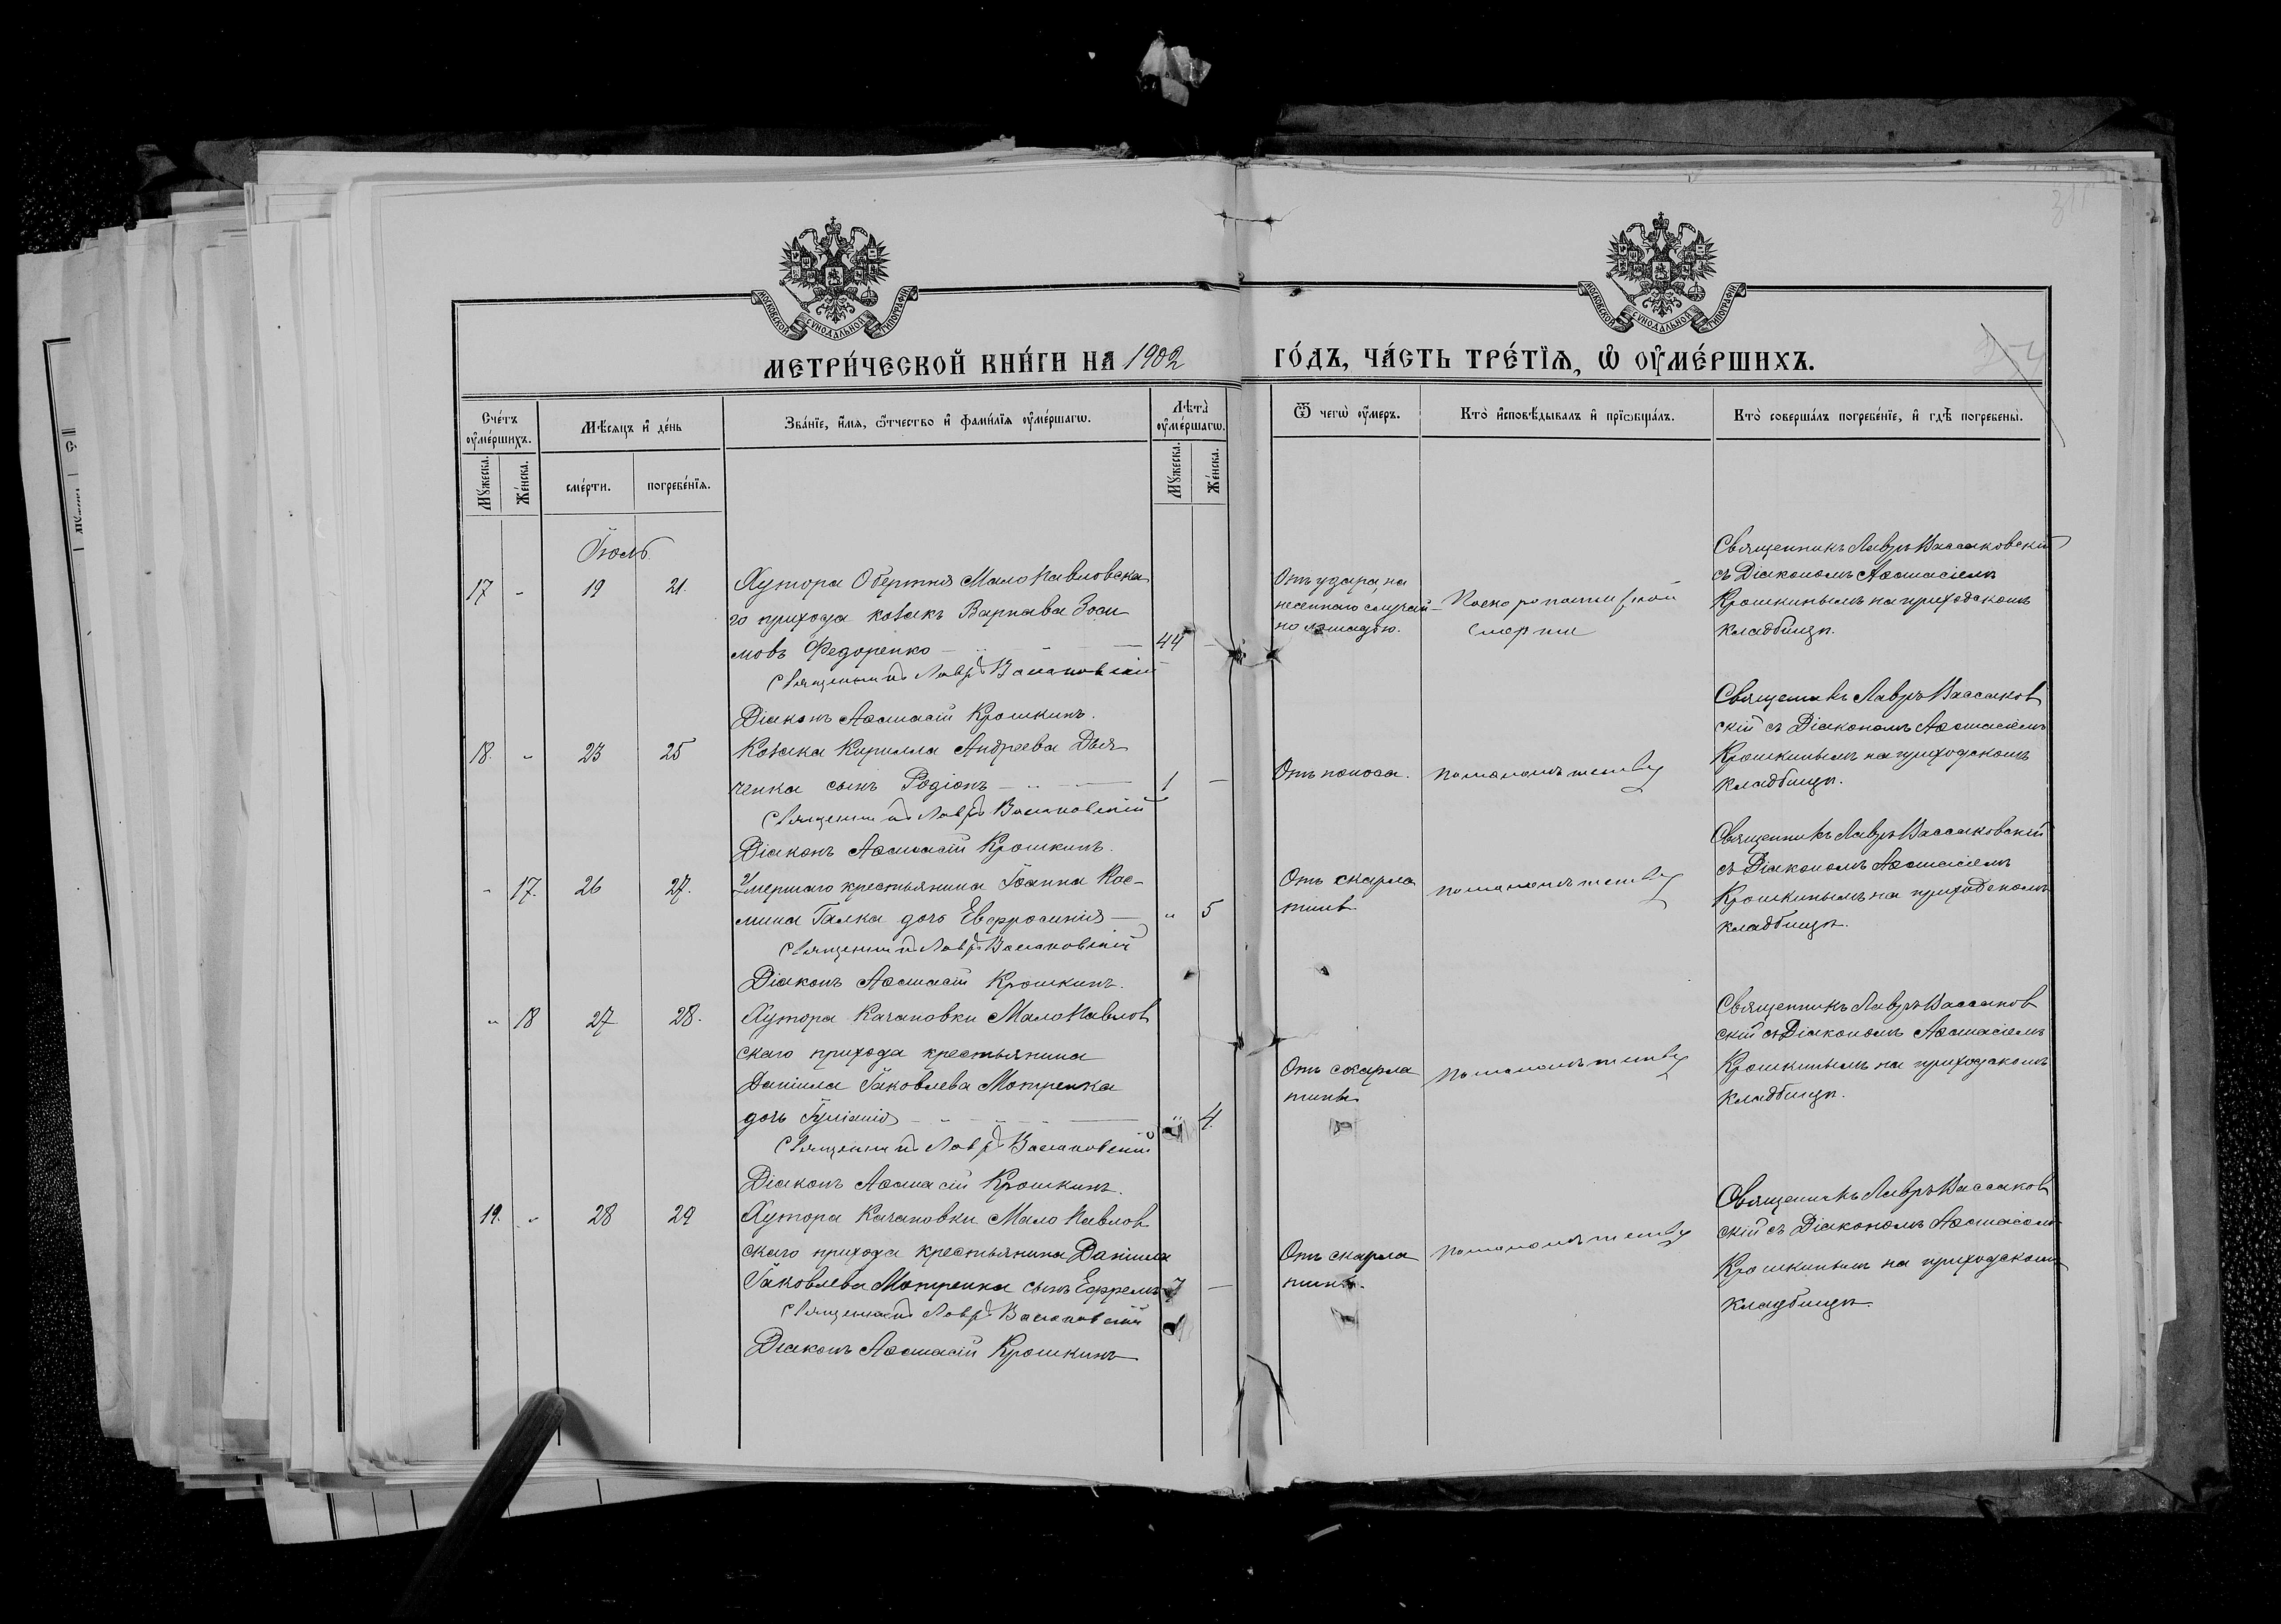 МОСКОВСКОЙ СУНОДАЛЬНОЙ ТИПОГРАФІИ
МОСКОВСКОЙ СУНОДАЛЬНОЙ ТИПОГРАФІИ
МЕТРИ́ЧЕСКОЙ КНИ́ГИ НА 1902 ГО́ДЪ, ЧА́СТЬ ТРЕ́ТІѦ, Ѡ ОУМЕ́РШИХЪ.
Сче́тъ оумершихъ.
Мѣсяцъ и де́нь
Зва́нїе, и́мя, ѻтчество и фами́лїя оуме́ршагѡ.
Лѣта оуме́ршагѡ.
Ѿ чегѡ оумеръ.
Кто исповѣдывалъ и прїѡбщалъ.
Кто соверша́лъ погребе́нїе, и гдѣ погребены.
Мꙋжеска.
Же́нска.
сме́рти.
погребе́нїя.
Мꙋжеска.
Же́нска.
Іюль
17 - 19 21.
Хутора Обертня Мало Павловска
го прихода козакъ Варнава Зоси
мовъ Федоренко 44 -
Священникъ Лавръ Вассаковскій
Діаконъ Аѳанасій Крошкинъ.
Отъ удара, на
несеннаго случай-
но лошадью.
По скоропостижной
смерти
Священникъ Лавръ Вассаковскій
съ Діакономъ Аѳанасіемъ
Крошкинымъ на приходскомъ
кладбищѣ.
18. - 23 25
Козака Кирилла Андреева Дья
ченка сынъ Родіонъ 1 -
Священникъ Лавръ Вассаковскій
Діаконъ Аѳанасій Крошкинъ.
Отъ поноса.
По малолѣтству
Священникъ Лавръ Вассаков
скій съ Діакономъ Аѳанасіемъ
Крошкинымъ на приходскомъ
кладбищѣ.
- 17. 26 27.
Умершаго крестьянина Іоанна Кос-
мина Галка дочь Евфросинія " 5
Священникъ Лавръ Вассаковскій
Діаконъ Аѳанасій Крошкинъ.
Отъ скарла
тины
По малолѣтству
Священникъ Лавръ Вассаковскій
съ Діакономъ Аѳанасіемъ
Крошкинымъ на приходскомъ
кладбищѣ.
" 18 27 28.
Хутора Качановки Мало Павлов
скаго прихода крестьянина
Даніила Іаковлева Мотренка
дочь Іуліанія " 4
Священникъ Лавръ Вассаковскій
Діаконъ Аѳанасій Крошкинъ.
Отъ скарла
тины
По малолѣтству
Священникъ Лавръ Вассаков
скій съ Діакономъ Аѳанасіемъ
Крошкинымъ на приходскомъ
кладбищѣ.
19. " 28 29
Хутора Качановки Мало Павлов
скаго прихода крестьянина Даніила
Іаковлева Мотренка сынъ Ефремъ 7 -
Священникъ Лавръ Вассаковскій
Діаконъ Аѳанасій Крошкинъ
Отъ скарла
тины.
По малолѣтству
Священникъ Лавръ Вассаков
скій съ Діакономъ Аѳанасіемъ
Крошкинымъ на приходскомъ
кладбищѣ.